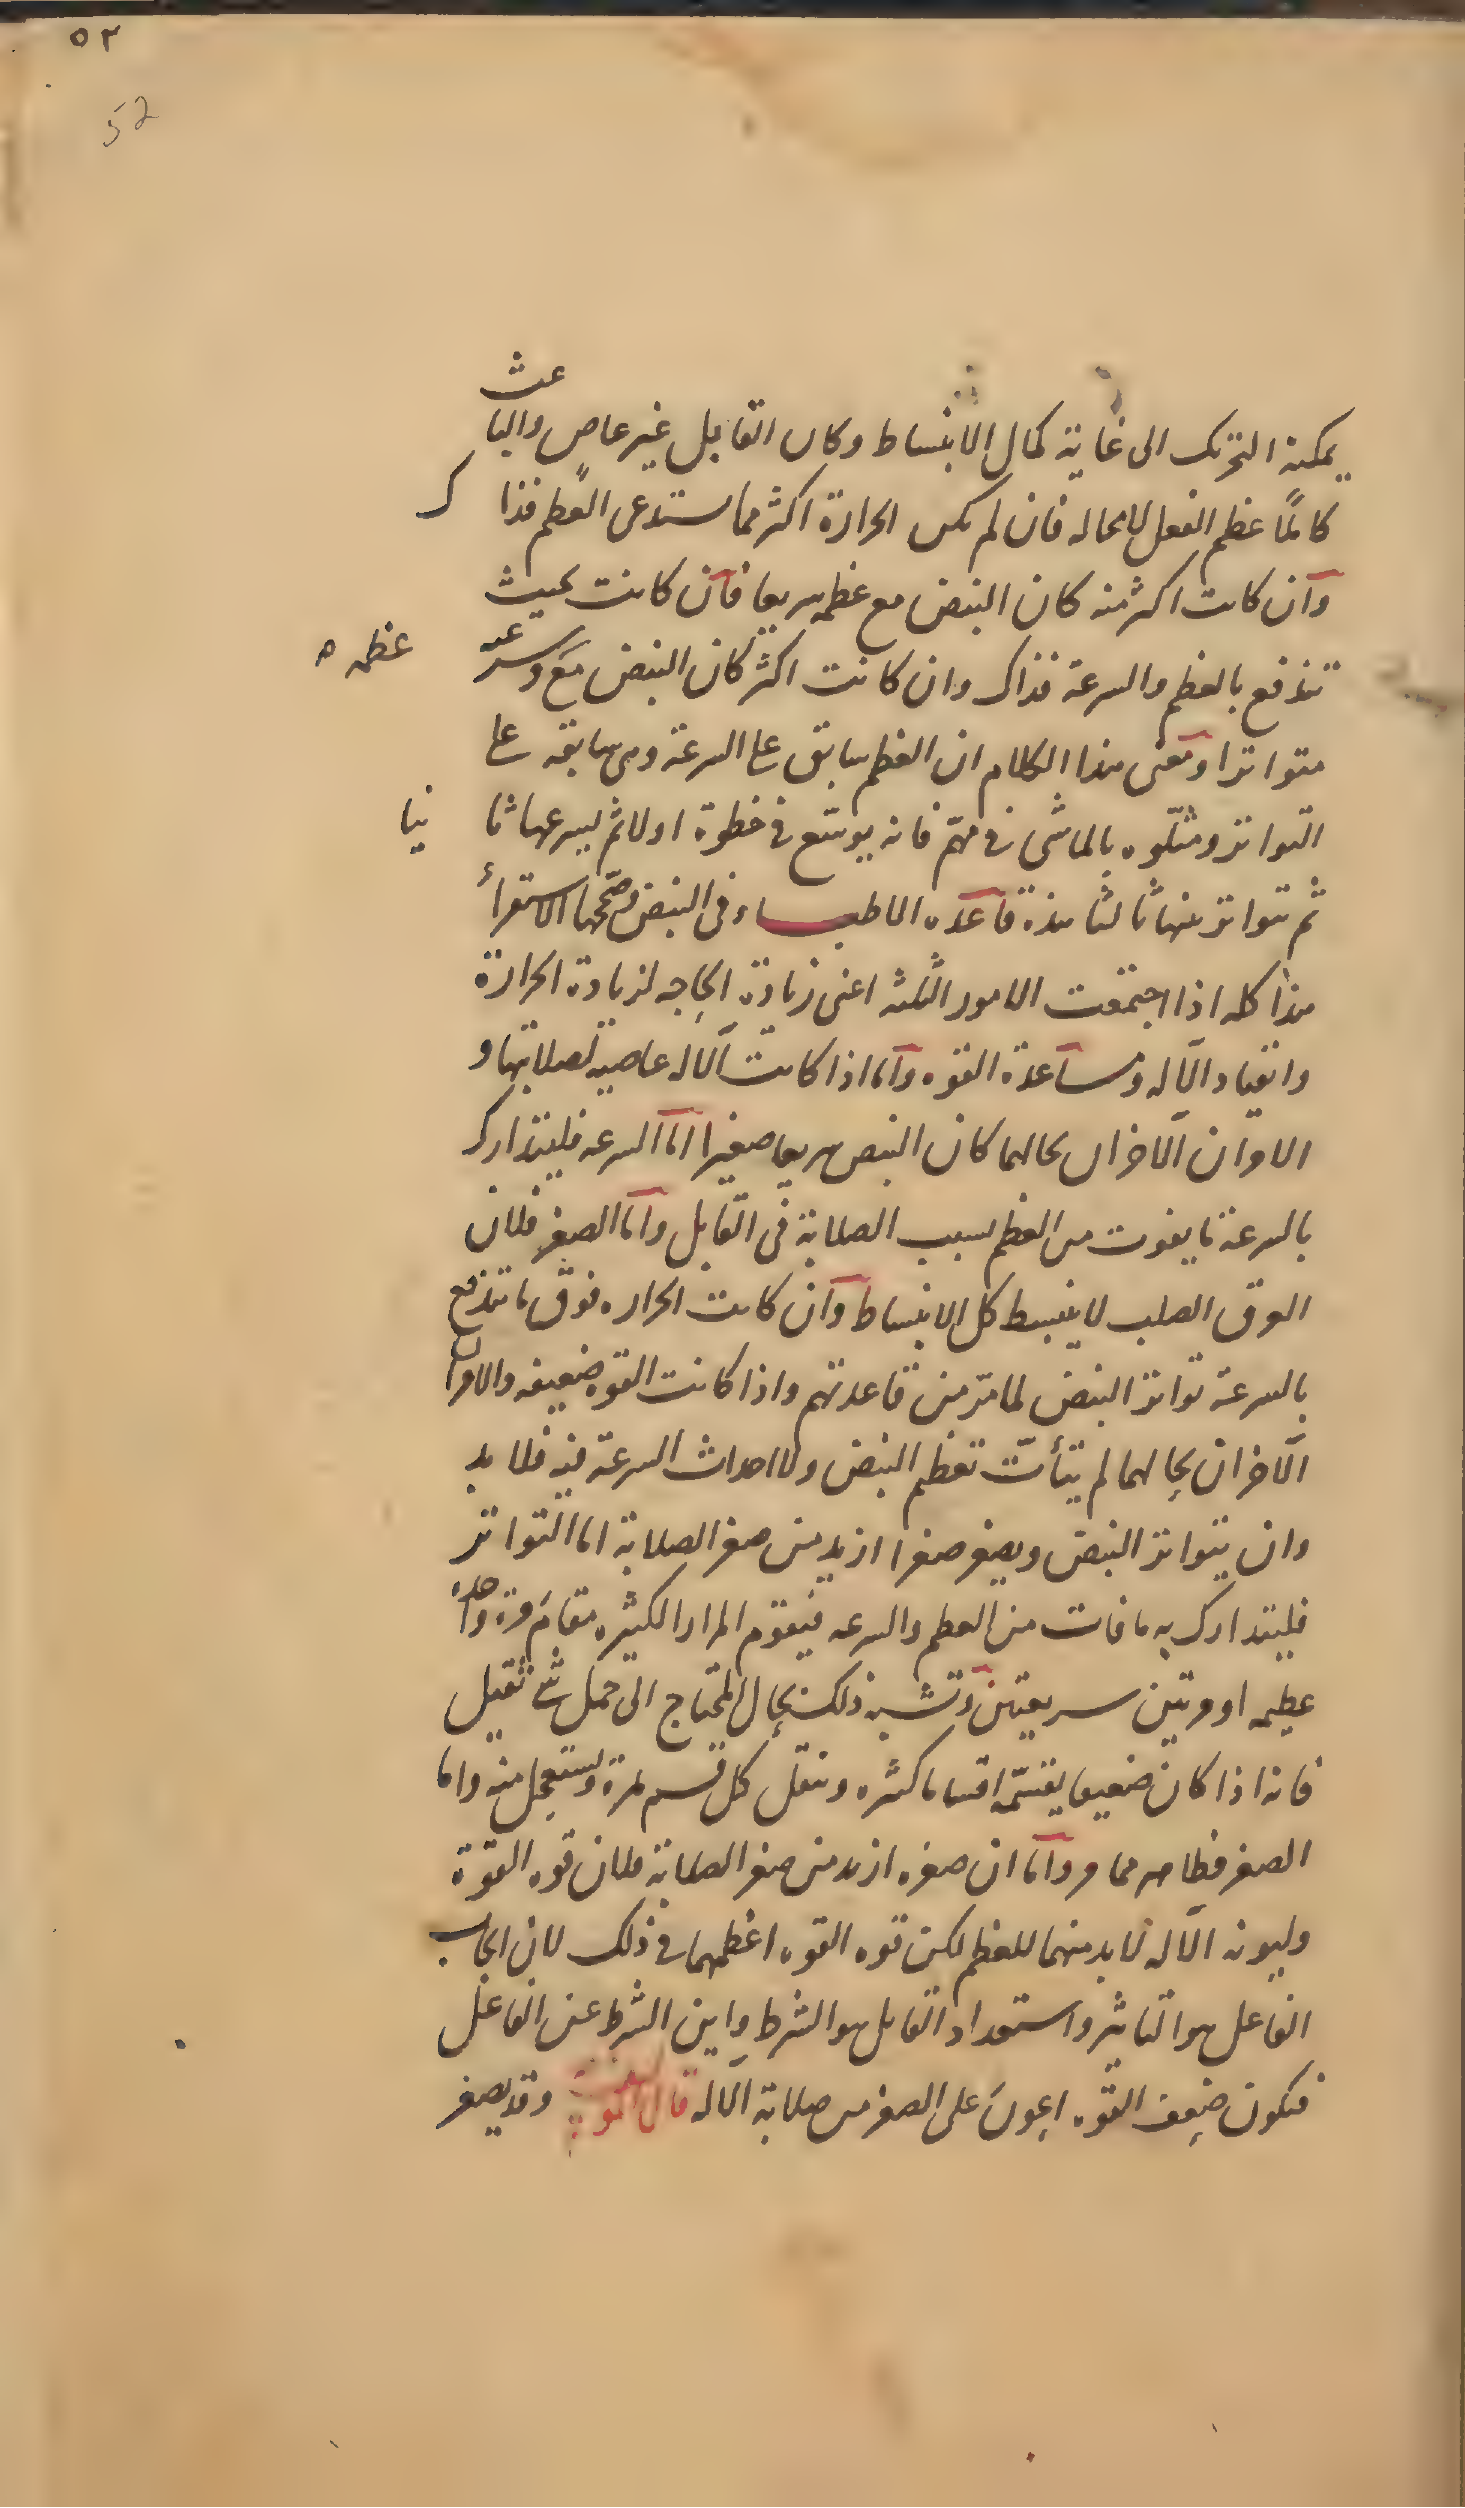 ٥٢
52
يمكنه التحريك الى غاية كمال الانبساط وكان القابل غير عاص والباعث
كاملًا عظم الفعل لامحاله فان لم يكن الحرارة اكثر مما يستدعى العظم فذاك
وآن كانت اكثر منه كان النبض مع عظمه سريعا فآن كانت بحيث
تندفع بالعظم والسرعة فذاك وان كانت اكثر كان النبض مع وسرعته عظمه
متواترا ومعنى هذا الكلام ان العظم سابق على السرعة وهى سابقه على
التواتر ومثلوه بالماشى فى مهمّ فانه يوسّع فى خطوة اولا ثم يسرعها ثانيا
ثم تتواتر منها ثالثا هذه قاعده الاطباء فى النبض صحّحها الاستقرأ
هذا كله اذا اجتمعت الامور الثلثه اعنى زيادة الحاجه لزيادة الحرارة
وانقياد الآله ومساعدة القوه وآما اذا كانت الآله عاصيه لصلابتها و
الاوّان الآخران بحالهما كان النبض سريعا صغيرا امّا السرعه فليتدارك
بالسرعة ما يفوت من العظم بسبب الصلابة فى القابل وآما الصغر فلان
العرق الصلب لا ينبسط كل الانبساط وآن كانت الحراره فوق ما تندفع
بالسرعة تواتر النبض لما مرّ من قاعدتهم واذا كانت القوه ضعيفه والاوان
الآخران بحالهما لم يتأتّ تعظم النبض ولا احداث السرعة فيه فلا بد
وان يتواتر النبض ويصغر صغرا ازيد من صغر الصلابة اما التواتر
فليتدارك به ما فات من العظم والسرعه فيقوم المرار الكثيره مقام مرة واحدة
عظيمه او مرتين سريعتين وتشبه ذلك بحال المحتاج الى حمل شئ ثقيل
فانه اذا كان ضعيفا يقسّمه اقساما كثره وينقل كل قسم مرة ويستعجل منه واما
الصغر فظاهر مما مر وآما ان صغره ازيد من صغر الصلابة فلان قوه القوة
وليونه الآله لابد منهما للعظم لكن قوه القوه اعظمهما فى ذلك لان الجانب
الفاعل هو التاثير واستعداد القابل هو الشرط واين الشرط عن الفاعل
فيكون ضعف القوه اعون على الصغر من صلابة الآله قال وقد يصغر